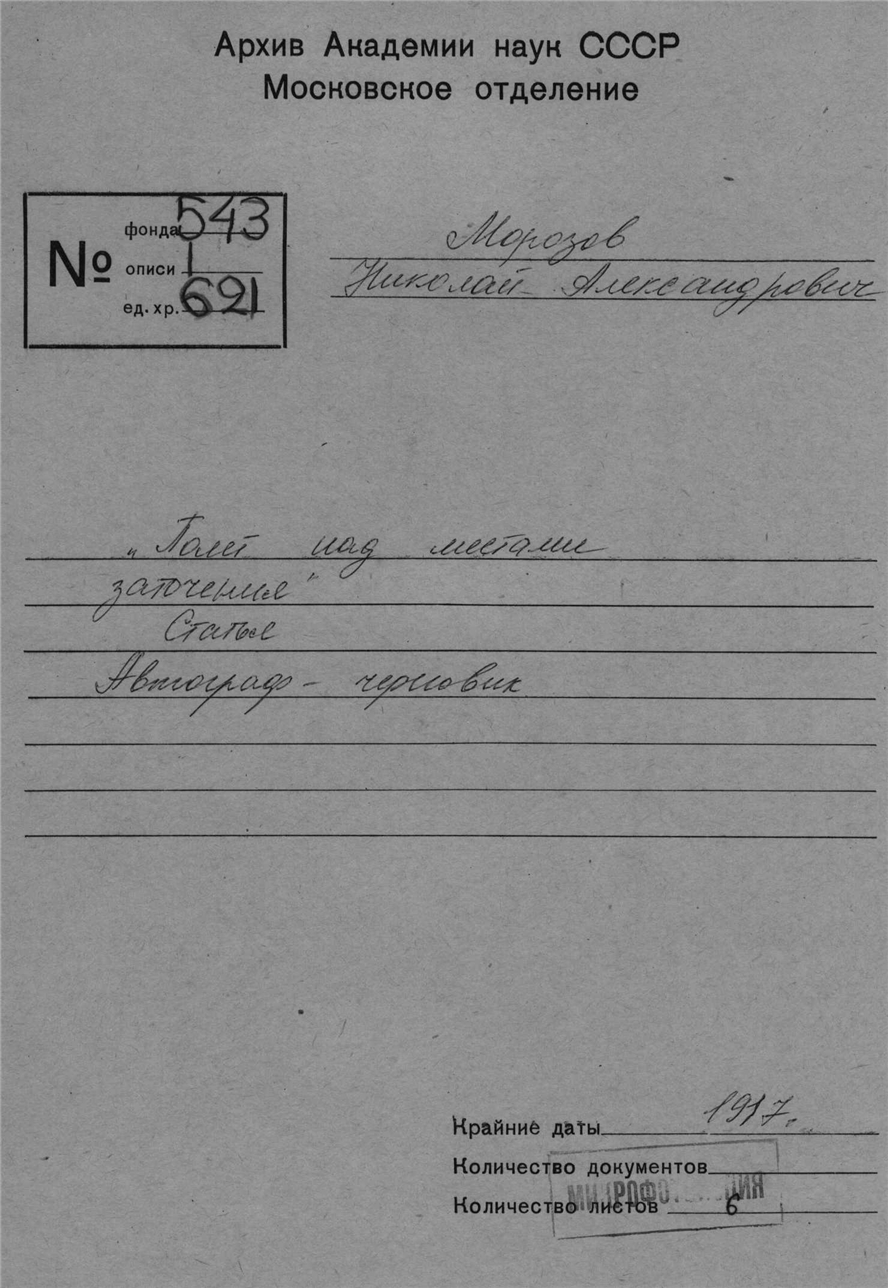 Архив Академии наук СССР
Московское отделение
№
фонда 543
описи 1
ед. хр. 621
Морозов
Николай Александрович
„Полет над местами
заточения"
Статья
Автограф - черновик
Крайние даты 1917 г.
Количество документов
Количество листов 6